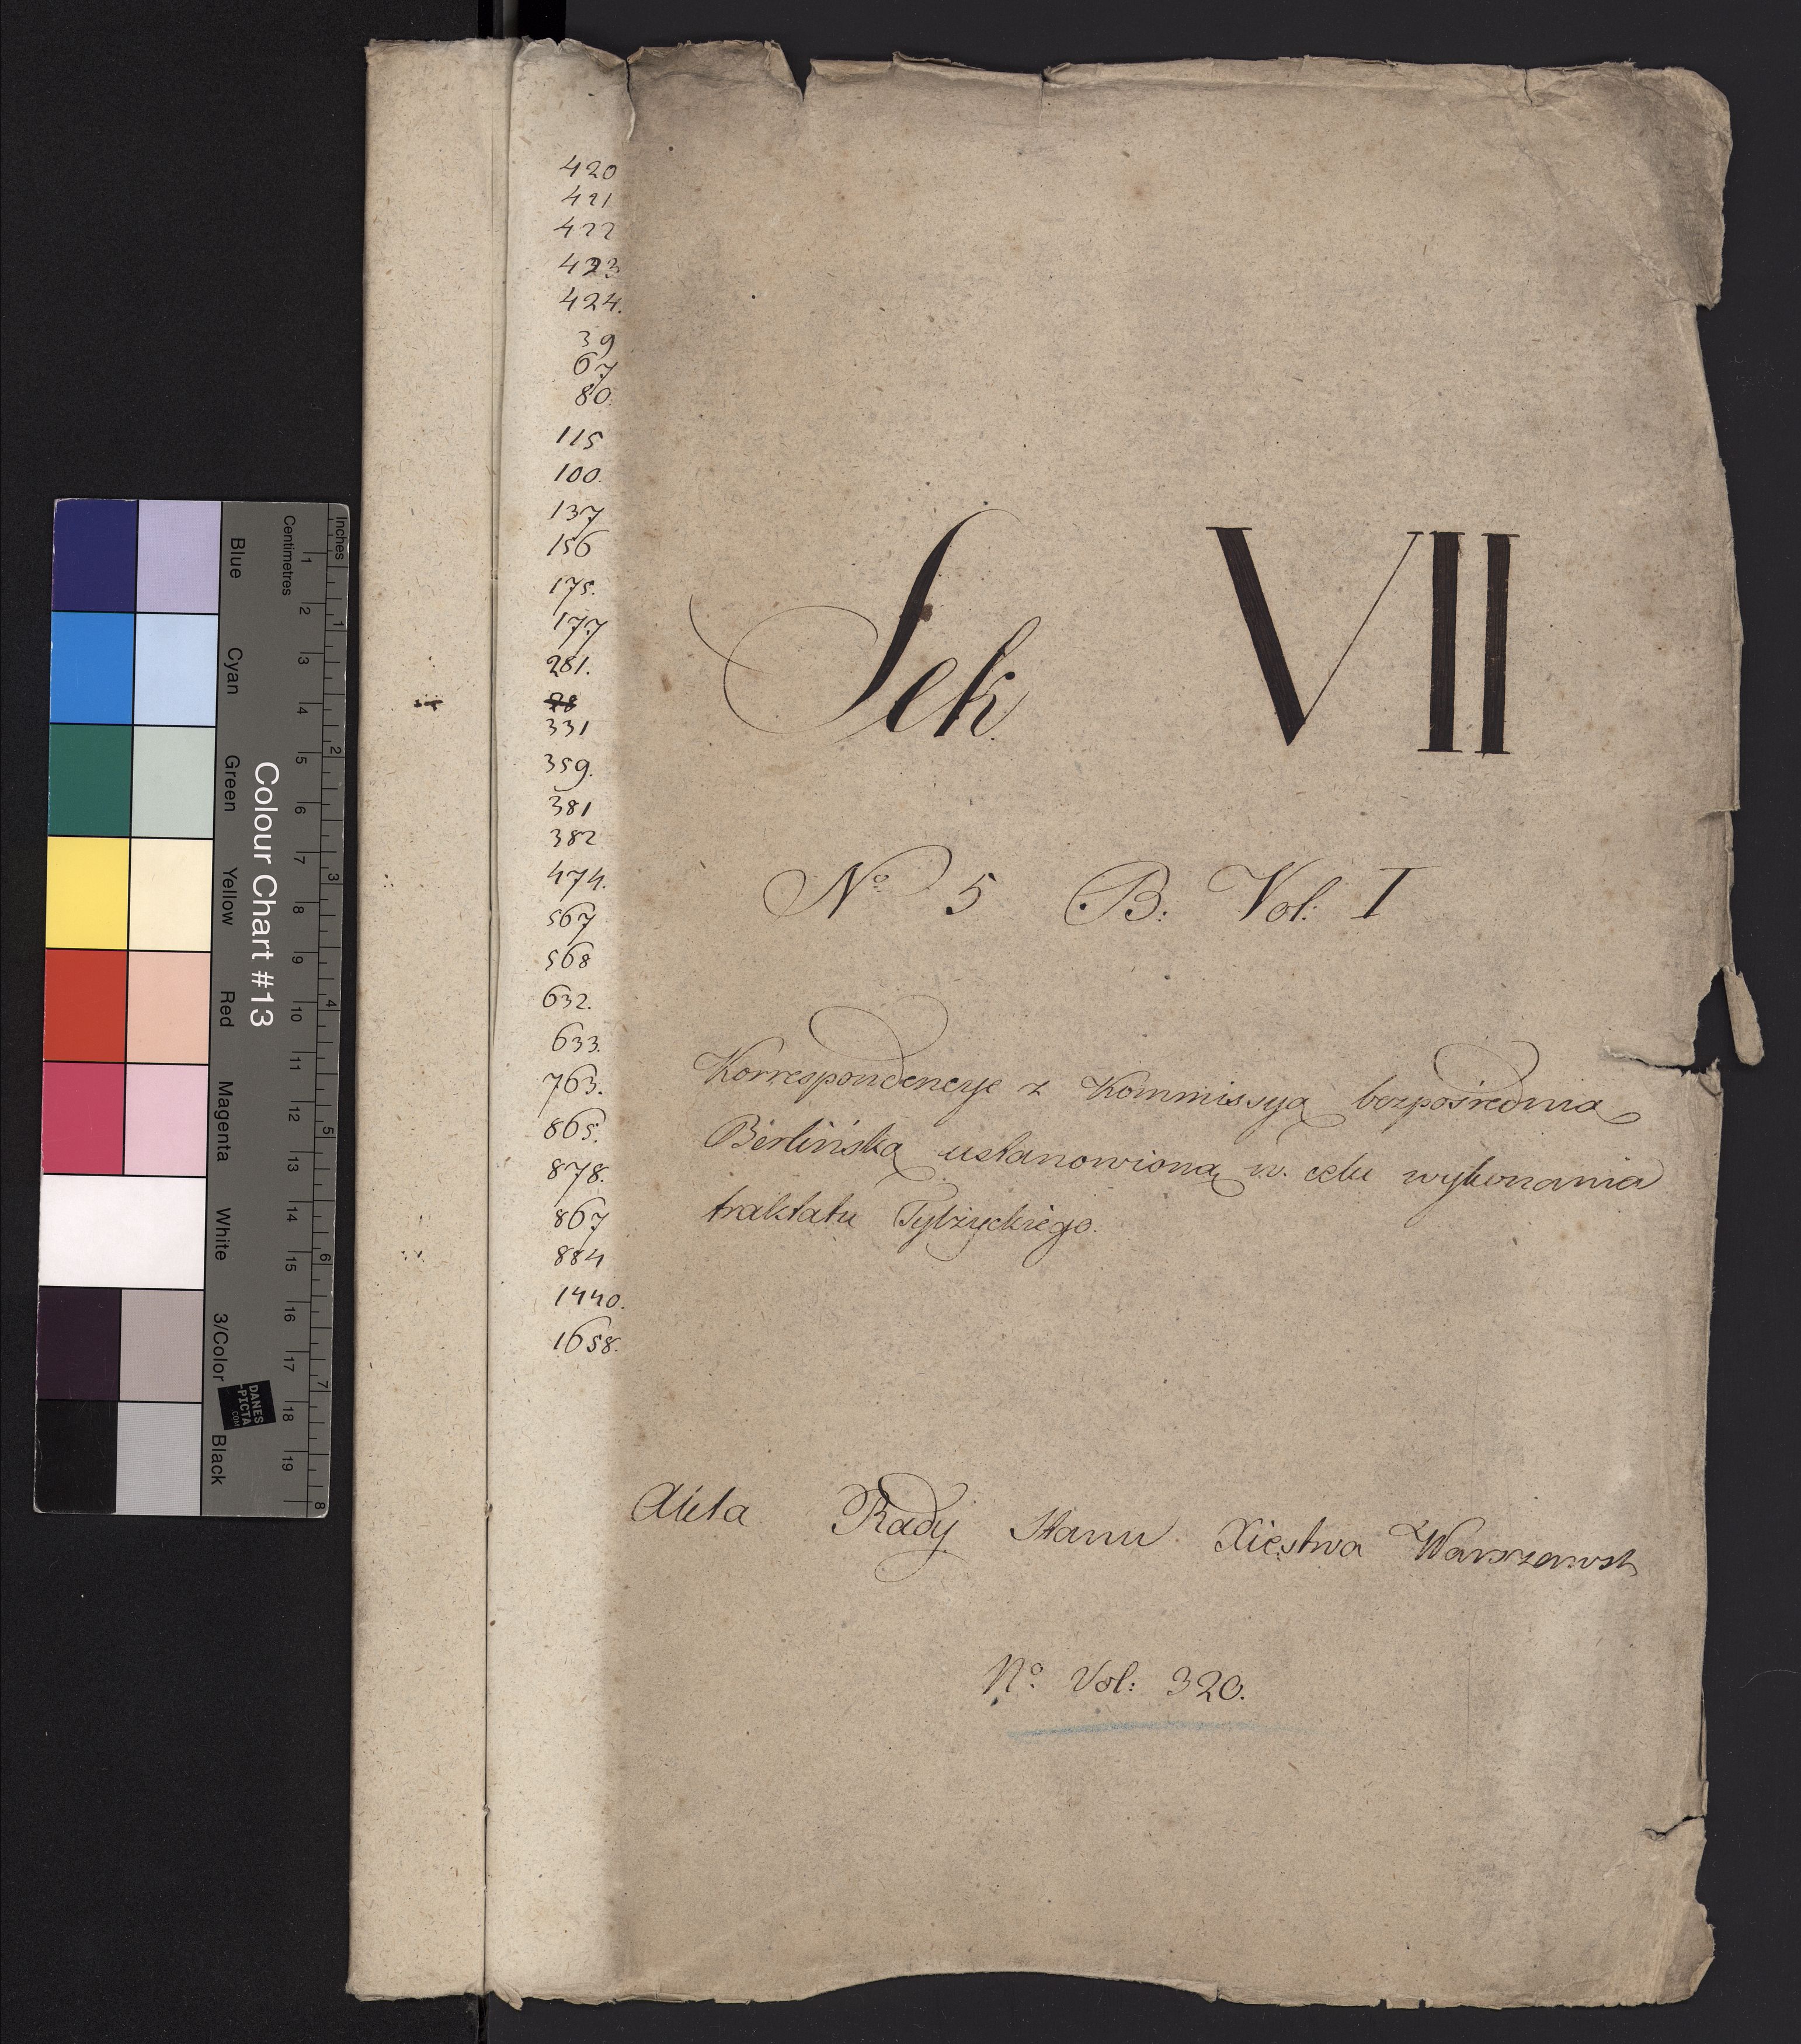 420
421
422
423
424.
39
67
80.
115
100.
137
156
175.
177
281.
78
331
359.
381
382
474.
567
568
632.
633.
763.
865.
878.
867
884
1440.
1658.
Sek VII
No 5 B: Vol: I
Korrespondencye z Kommissyą bezpośrednią
Berlińską ustanowioną w celu wykonania
traktatu Tylżyckiego.
Akta Rady Stanu Xięstwa Warszawsk
No Vol: 320.
Colour Chart #13
Blue Cyan Green Yellow Red Magenta White 3/Color Black
Centimetres 1 2 3 4 5 6 7 8 9 10 11 12 13 14 15 16 17 18 19
Inches 1 2 3 4 5 6 7 8
DANES
-PICTA
.COM